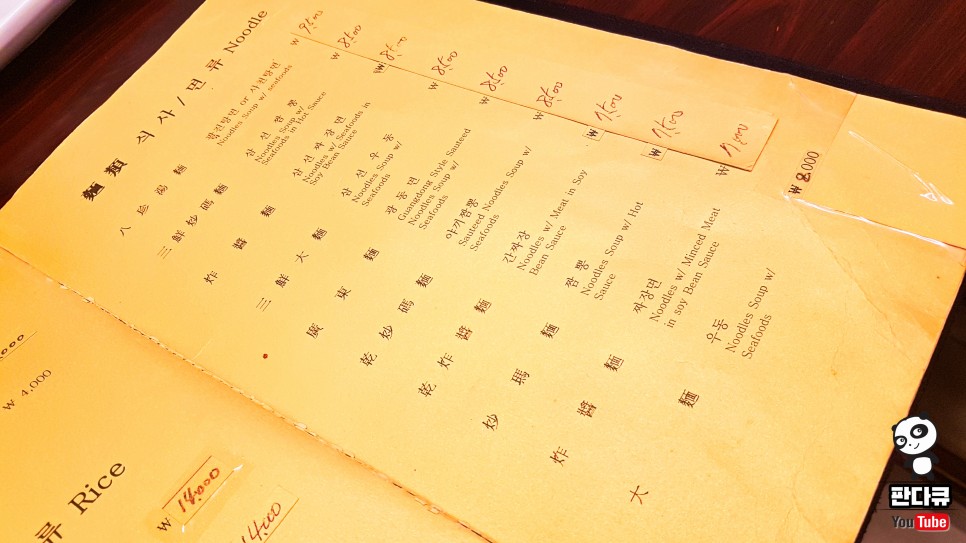 麵類 식사/면류 Noodle
八珍湯麵
팔진탕면 or 사천탕면
Noodles Soup w/ seafoods
₩ 9,500
三鮮炒瑪麵
삼선짬뽕
Noodles Soup w/
Seafoods in Hot Sauce
₩ 8,500
炸醬麵
삼선짜장면
Noodles w/ Seafoods in
Soy Bean Sauce
₩ 8,500
三鮮大麵
삼선우동
Noodles Soup w/
Seafoods
₩ 8,500
廣東麵
광동면
Guangdong Style Sauteed
Noodles Soup w/
Seafoods
₩ 8,500
乾炒瑪麵
야끼짬뽕
Sauteed Noodles Soup w/
Seafoods
₩ 8,500
乾炸醬麵
간짜장
Noodles w/ Meat in Soy
Bean Sauce
₩ 7,500
炒瑪麵
짬뽕
Noodles Soup w/ Hot
Sauce
₩ 7,500
炸醬麵
짜장면
Noodles w/ Minced Meat
in soy Bean Sauce
₩ 7,000
大麵
우동
Noodles Soup w/
Seafoods
₩ 8,000
₩ 4,000
류 Rice
₩
14,000
판다큐
YouTube